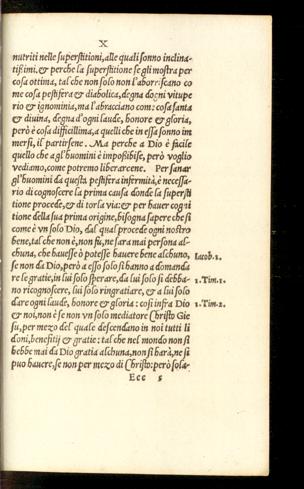 X
nutriti nelle superstitioni, alle quali sonno inclina-
tißimi. & perche la superstitione se gli mostra per
cosa ottima, tal che non solo non l'aborriscano co
me cosa pestifera & diabolica, degna dogni vitupe
rio & ignominia, ma l'abracciano come cosa santa
& diuina, degna d'ogni laude, honore & gloria,
però è cosa difficillima, a quelli che in essa sonno im
mersi, il partirsene. Ma perche a Dio è facile
quello che a gl'huomini è impoßibile, però voglio
vediamo, come potremo liberarcene. Per sanar
gl'huomini da questa pestifera infermità, è necessa-
rio di cognoscere la prima causa donde la supersti
tione procede, & di torla via: & per hauer cogni
tione della sua prima origine, bisogna sapere che si
come è vn solo Dio, dal qual procede ogni nostro
bene, tal che non è, non fu, ne sara mai persona al-
chuna, che hauesse ò potesse hauere bene alchuno, Iacob.1.
se non da Dio, però a esso solo si hanno a domanda
re le gratie, in lui solo sperare, da lui solo si debba- 1.Tim.1.
no ricognoscere, lui solo ringratiare, & a lui solo
dare ogni laude, honore & gloria: cosi infra Dio 1.Tim.2.
& noi, non è se non vn solo mediatore Christo Gie
su, per mezo del quale descendano in noi tutti li
doni, benefitij & gratie: tal che nel mondo non si
hebbe mai da Dio gratia alchuna, non si harà, ne si
puo hauere, se non per mezo di Christo: però sola-
Eee 5